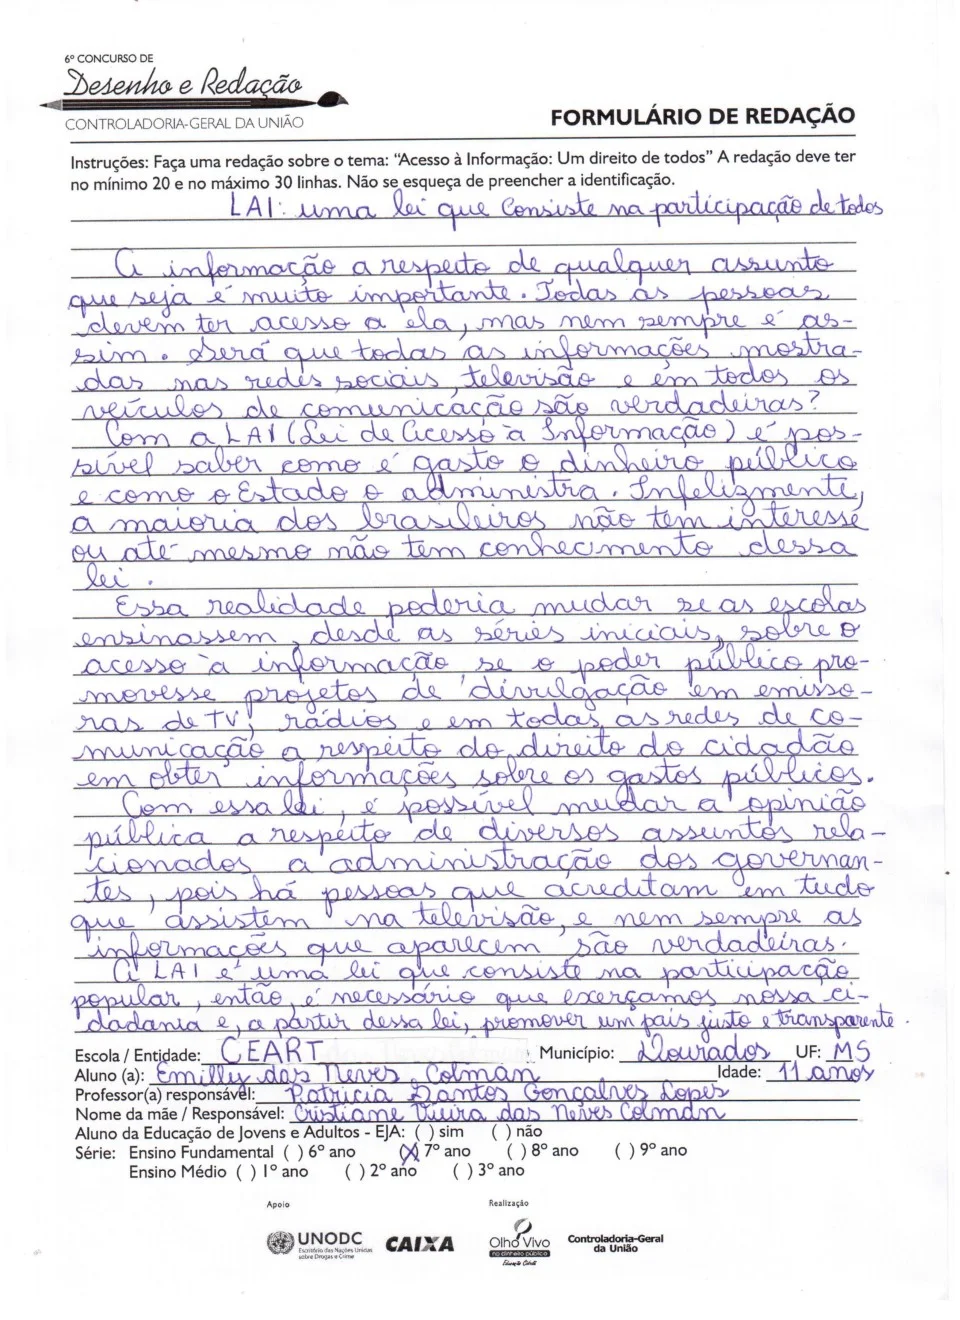 6º CONCURSO DE
Desenho e Redação
CONTROLADORIA-GERAL DA UNIÃO
FORMULÁRIO DE REDAÇÃO
Instruções: Faça uma redação sobre o tema: "Acesso à Informação: Um direito de todos" A redação deve ter
no mínimo 20 e no máximo 30 linhas. Não se esqueça de preencher a identificação.
LAI: uma lei que consiste na participação de todos
A informação a respeito de qualquer assunto
que seja é muito importante. Todas as pessoas
devem ter acesso a ela, mas nem sempre é as-
sim. Será que todas as informações mostra-
das nas redes sociais, televisão e em todos os
veículos de comunicação são verdadeiras?
Com a LAI (Lei de Acesso à Informação) é pos-
sível saber como é gasto o dinheiro público
e como o Estado o administra. Infelizmente,
a maioria dos brasileiros não tem interesse
ou até mesmo não tem conhecimento dessa
lei.
Essa realidade poderia mudar se as escolas
ensinassem, desde as séries iniciais, sobre o
acesso à informação se o poder público pro-
movesse projetos de divulgação em emisso-
ras de TV, rádios e em todas as redes de co-
municação a respeito do direito do cidadão
em obter informações sobre os gastos públicos.
Com essa lei, é possível mudar a opinião
pública a respeito de diversos assuntos rela-
cionados a administração dos governan-
tes, pois há pessoas que acreditam em tudo
que assistem na televisão, e nem sempre as
informações que aparecem são verdadeiras.
A LAI é uma lei que consiste na participação
popular, então, é necessário que exerçamos nossa ci-
dadania e, a partir dessa lei, promover um país justo e transparente.
Escola / Entidade: CEART Município: Dourados UF: MS
Aluno (a): Emilly das Neves Colman Idade: 11 anos
Professor(a) responsável: Patricia Dantos Gonçalves Lopes
Nome da mãe / Responsável: Cristiane Vieira das Neves Colman
Aluno da Educação de Jovens e Adultos - EJA: ( ) sim ( ) não
Série: Ensino Fundamental ( ) 6º ano (X) 7º ano ( ) 8º ano ( ) 9º ano
Ensino Médio ( ) 1º ano ( ) 2º ano ( ) 3º ano
Apoio Realização
UNODC
Escritório das Nações Unidas
sobre Drogas e Crime
CAIXA
Olho Vivo
no dinheiro público
Educação Cidadã
Controladoria-Geral
da União